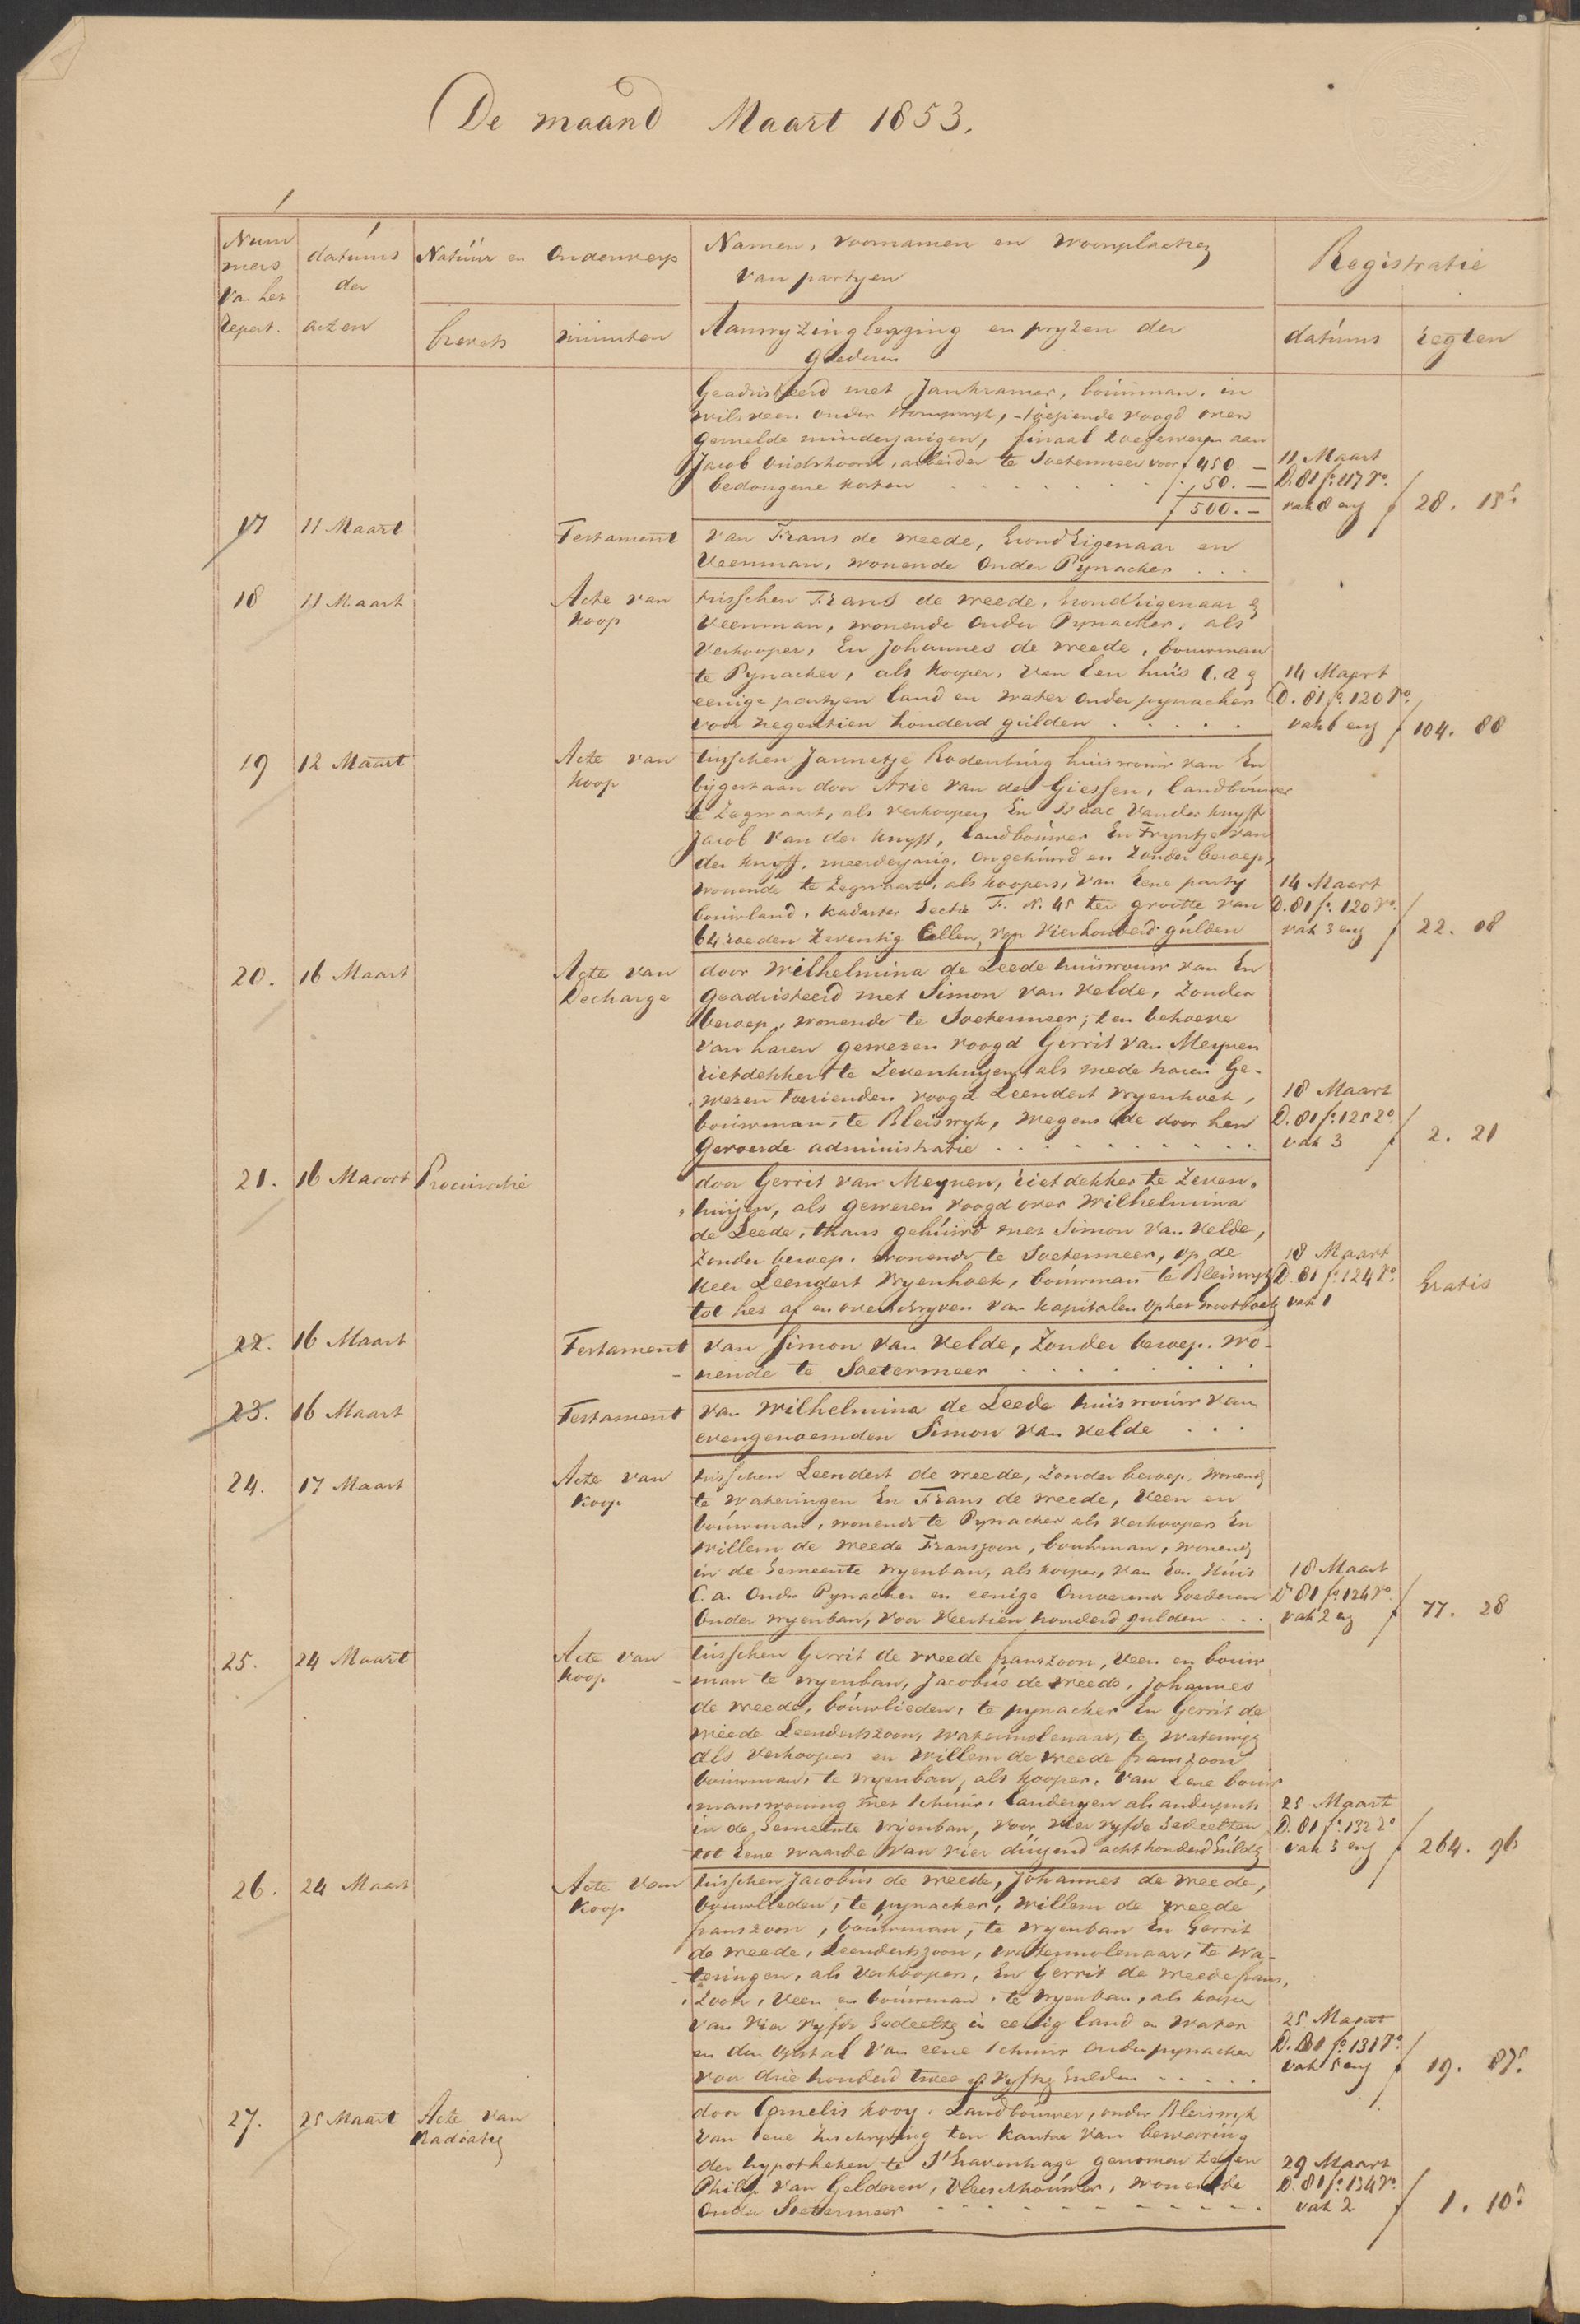 De maand Maart 1853.
Num
mers
van het
Repert.
datúms
der
acten
Natúur en Onderwerp
brevets
minuten
Namen, voornamen en woonplaatsen
van partyen
Aanwyzing legging en pryzen der
goederen
Registratie
datúms
regten
Geadsisteerd met Jan Kramer, boúwman, in
Wilsveen onder Stompwyk, toeziende voogd over
gemelde minderjarigen, finaal toegewezen aan
Jacob , arbeider te Soetermeer voor f 450. —
bedongene kosten . . . . . . . 50. —
f 500. —
11 Maart
D. 81 fo. 117 Vo.
vak 8 en f 28. 15⁵
17
11 Maart
Testament
van Frans de Vreede, Grond Eigenaar en
Veenman, wonende onder Pynacker . . .
18
11 Maart
Acte van
Koop
tusschen Frans de Vreede, Grond Eigenaar en
Veenman, wonende onder Pynacker, als
Verkooper, En Johannes de Vreede, bouwman
te Pynacker, als Kooper, van Een huis C. a en
eenige partyen land en water onder pynacker
voor negentien honderd gúlden . . . . .
14 Maart
D. 81 fo. 120 Vo.
vak 6 en f 104. 88
19
12 Maart
Acte van
Koop
tússchen Jannetje Rodenbúrg huisvrouw van En
bijgestaan door Arie van der Giessen, landboúwer
te Zegwaart, als verkoopers En Isaac van der Knyff
Jacob van der Knyff, landboúwer En Tryntje van
der Knyff, meerderjarig, ongehúwd en zonder beroep,
wonende te Zegwaart, als koopers, van Eene party
boúwland, kadaster Sectie F. No. 45 ter grootte van
64 roeden Zeventig Ellen, voor Vierhonderd gúlden
14 Maart
D. 81 fo. 120 Vo.
vak 3 en f 22. 08
20.
16 Maart
Acte van
Decharge
door Wilhelmina de Leede huisvrouw van En
geadsisteerd met Simon van Velde, Zonder
beroep, wonende te Soetermeer; ten behoeve
van haren gewezen voogd Gerrit van Meynen
rietdekker te Zevenhuyzen, als mede haren Ge-
wezen toezienden voogd Leendert Vryenhoek,
boúwman, te Bleiswyk, wegens de door hen
gevoerde administratie . . . . . . .
18 Maart
D. 81 fo. 125 Ro
vak 3 f 2. 21
21.
16 Maart
Procuratie
door Gerrit van Meynen, rietdekker te Zeven-
huijzen, als gewezen voogd over Wilhelmina
de Leede, thans gehúwd met Simon van Velde,
Zonder beroep, wonende te Soetermeer, op de
Heer Leendert Vryenhoek, boúwman te Bleiswyk
tot het af en overschryven van kapitalen op het Grootboek
18 Maart
D. 81 fo. 124 Vo.
vak 1
Gratis
22.
16 Maart
Testament
van Simon van Velde, Zonder beroep, wo-
nende te Soetermeer . . . . . .
23.
16 Maart
Testament
van Wilhelmina de Leede huisvrouw van
evengenoemden Simon van Velde . . .
24.
17 Maart
Acte van
Koop
tusschen Leendert de Vreede, Zonder beroep, wonende
te Wateringen En Frans de Vreede, Veen en
boúwman, wonende te Pynacker als Verkoopers En
Willem de Vreede Franszoon, boúwman, wonende
in de Gemeente Vryenban, als kooper, van Een Húis
C. a. Onder Pynacker en eenige Onroerend Goederen
onder Vryenban, voor Veertien honderd gulden . . .
18 Maart
D 81 fo. 124 Vo.
vak 2 en f 77. 28
25.
24 Maart
Acte van
Koop
tússchen Gerrit de Vreede franszoon, Veen en bouw
man te Vryenban, Jacobús de Vreede, Johannes
de Vreede, boúwlieden, te pynacker En Gerrit de
Vreede Leendertszoon, watermolenaar, te Wateringen
als Verkoopers en Willem de Vreede franszoon
bouwman, te Vryenban, als kooper, van Eene bouw
manswoning met Schúúr, landeryen als anderzints
in de Gemeente Vrijenban, voor vier vyfde Gedeelten
tot Eene waarde van vier dúyzend achthonderd Gúlden
25 Maart
D. 81 fo. 132 Ro
vak 3 en f 264. 96
26.
24 Maart
Acte van
Koop
tusschen Jacobús de Vreede, Johannes de Vreede,
bouwlieden, te pynacker, Willem de Vreede
franszoon, boúwman, te Vryenban En Gerrit
de Vreede, Leendertszoon, Watermolenaar, te Wa-
teringen, als Verkoopers, En Gerrit de Vreede frans,
zoon, Veen en boúwman, te Vryenban, als kooper
van vier vyfde Gedeelten in eenig land en water
en den opstal van eene Schuur onder pynacker
voor drie honderd twee en vyftig Gulden . . . . .
25 Maart
D. 81 fo. 131 Vo
vak 5 en f 19. 87⁵
27.
25 Maart
Acte van
Radiatie
door Cornelis Kooy, Landboúwer, onder Bleiswyk
van eene inschryving ten kantore van bewaring
der hypotheken te S'Gravenhage genomen tegen
Philip van Gelderen, Vleeschhoúwer, wonende
onder Soetermeer . . . . . . . . .
29 Maart
D. 81 fo. 134 Vo.
vak 2 f 1. 10⁵